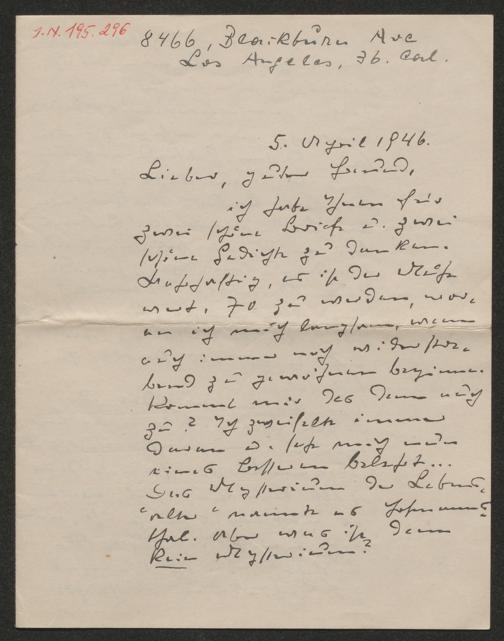 I.N. 195.296
8466, Blackburn Ave
Los Angeles, 36. Cal.
5. April 1946.
Lieber, guter Freund,
ich habe Ihnen für
zwei schöne Briefe u. zwei
schöne Gedichte zu danken.
Wahrhaftig, es ist der Mühe
wert, 70 zu werden, wor-
an ich mich langsam, wenn
auch immer noch widerstre-
bend zu gewöhnen beginne.
Kommt mir das denn auch
zu? Ich zweifelte immer
daran u. sehe mich nun
eines Besseren belehrt...
Das Mysterium des Lebens-
"alters" nannte es Hofmanns-
thal. Aber was ist denn
kein Mysterium?